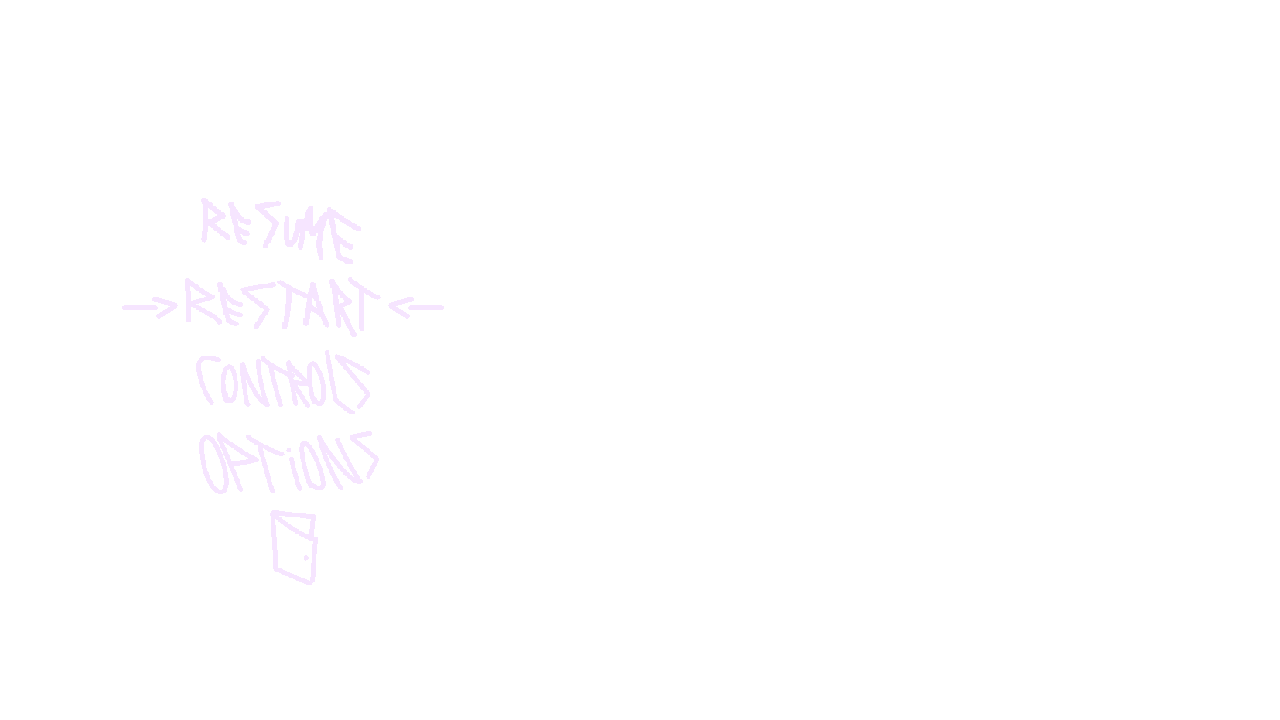 RESUME
→RESTART←
CONTROLS
OPTiONS